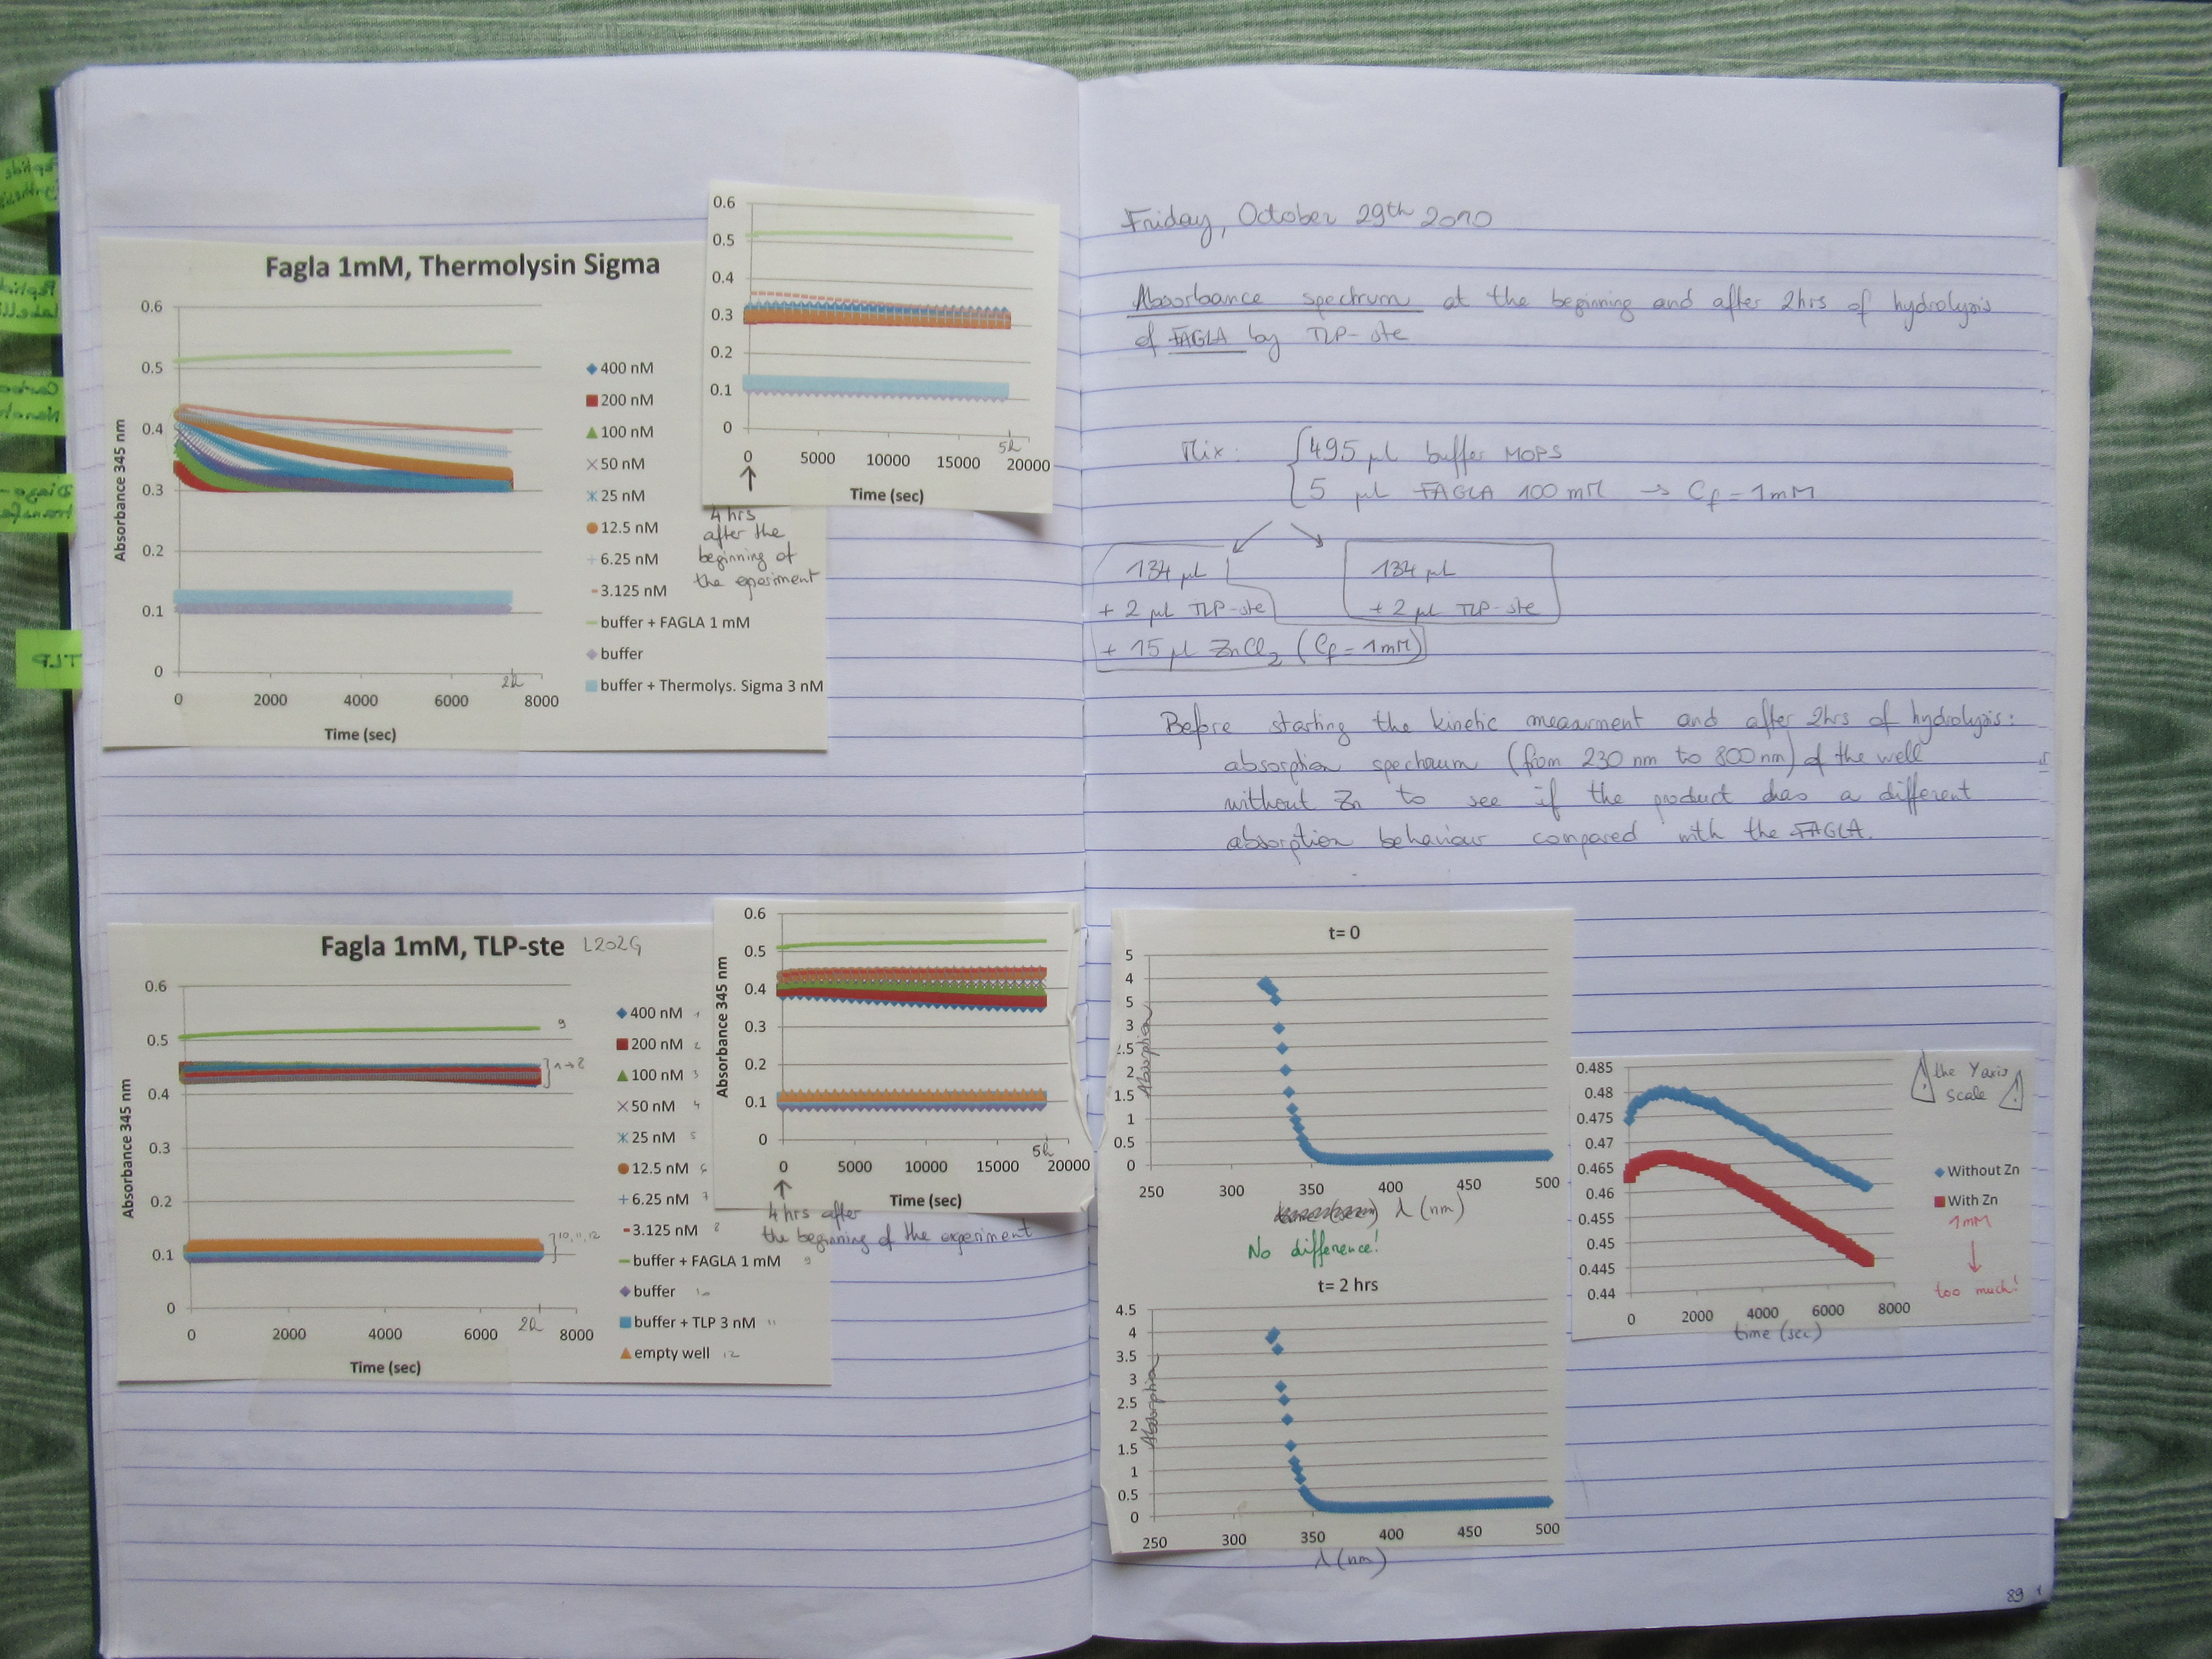 Fagla 1mM, Thermolysin Sigma
0.6
0.5
0.4
0.3
0.2
0.1
0
Absorbance 345 nm
0 2000 4000 6000 8000
2h
Time (sec)
400 nM
200 nM
100 nM
50 nM
25 nM
12.5 nM
6.25 nM
3.125 nM
buffer + FAGLA 1 mM
buffer
buffer + Thermolys. Sigma 3 nM
0.6
0.5
0.4
0.3
0.2
0.1
0
0 5000 10000 15000 20000
5h
Time (sec)
4 hrs
after the
beginning of
the eperiment
Fagla 1mM, TLP-ste L202G
0.6
0.5
0.4
0.3
0.2
0.1
0
Absorbance 345 nm
9
1→8
10, 11, 12
0 2000 4000 6000 8000
2h
Time (sec)
400 nM 1
200 nM 2
100 nM 3
50 nM 4
25 nM 5
12.5 nM 6
6.25 nM 7
3.125 nM 8
buffer + FAGLA 1 mM 9
buffer 10
buffer + TLP 3 nM 11
empty well 12
0.6
0.5
0.4
0.3
0.2
0.1
0
Absorbance 345 nm
0 5000 10000 15000 20000
5h
Time (sec)
4 hrs after
the beginning of the experiment
TLP
Friday, October 29th 2010
Absorbance spectrum at the beginning and after 2hrs of hydrolysis
of FAGLA by TLP-ste
Mix: 495 µl buffer MOPS
5 µl FAGLA 100 mM → Cf = 1mM
134 µl
+ 2 µl TLP-ste
+ 15 µl ZnCl2 (Cf = 1mM)
134 µl
+ 2 µl TLP-ste
Before starting the kinetic mesurment and after 2hrs of hydrolysis:
absorption spectrum (from 230 nm to 800 nm) of the well
without Zn to see if the product has a different
absorption behaviour compared with the FAGLA.
t= 0
5
4
5
3
2.5
2
1.5
1
0.5
0
Absorption
250 300 350 400 450 500
λ (nm)
No difference!
t= 2 hrs
4.5
4
3.5
3
2.5
2
1.5
1
0.5
0
Absorption
250 300 350 400 450 500
λ (nm)
0.485
0.48
0.475
0.47
0.465
0.46
0.455
0.45
0.445
0.44
0 2000 4000 6000 8000
time (sec)
! the Y axis
scale !
Without Zn
With Zn
1mM
↓
too much!
89